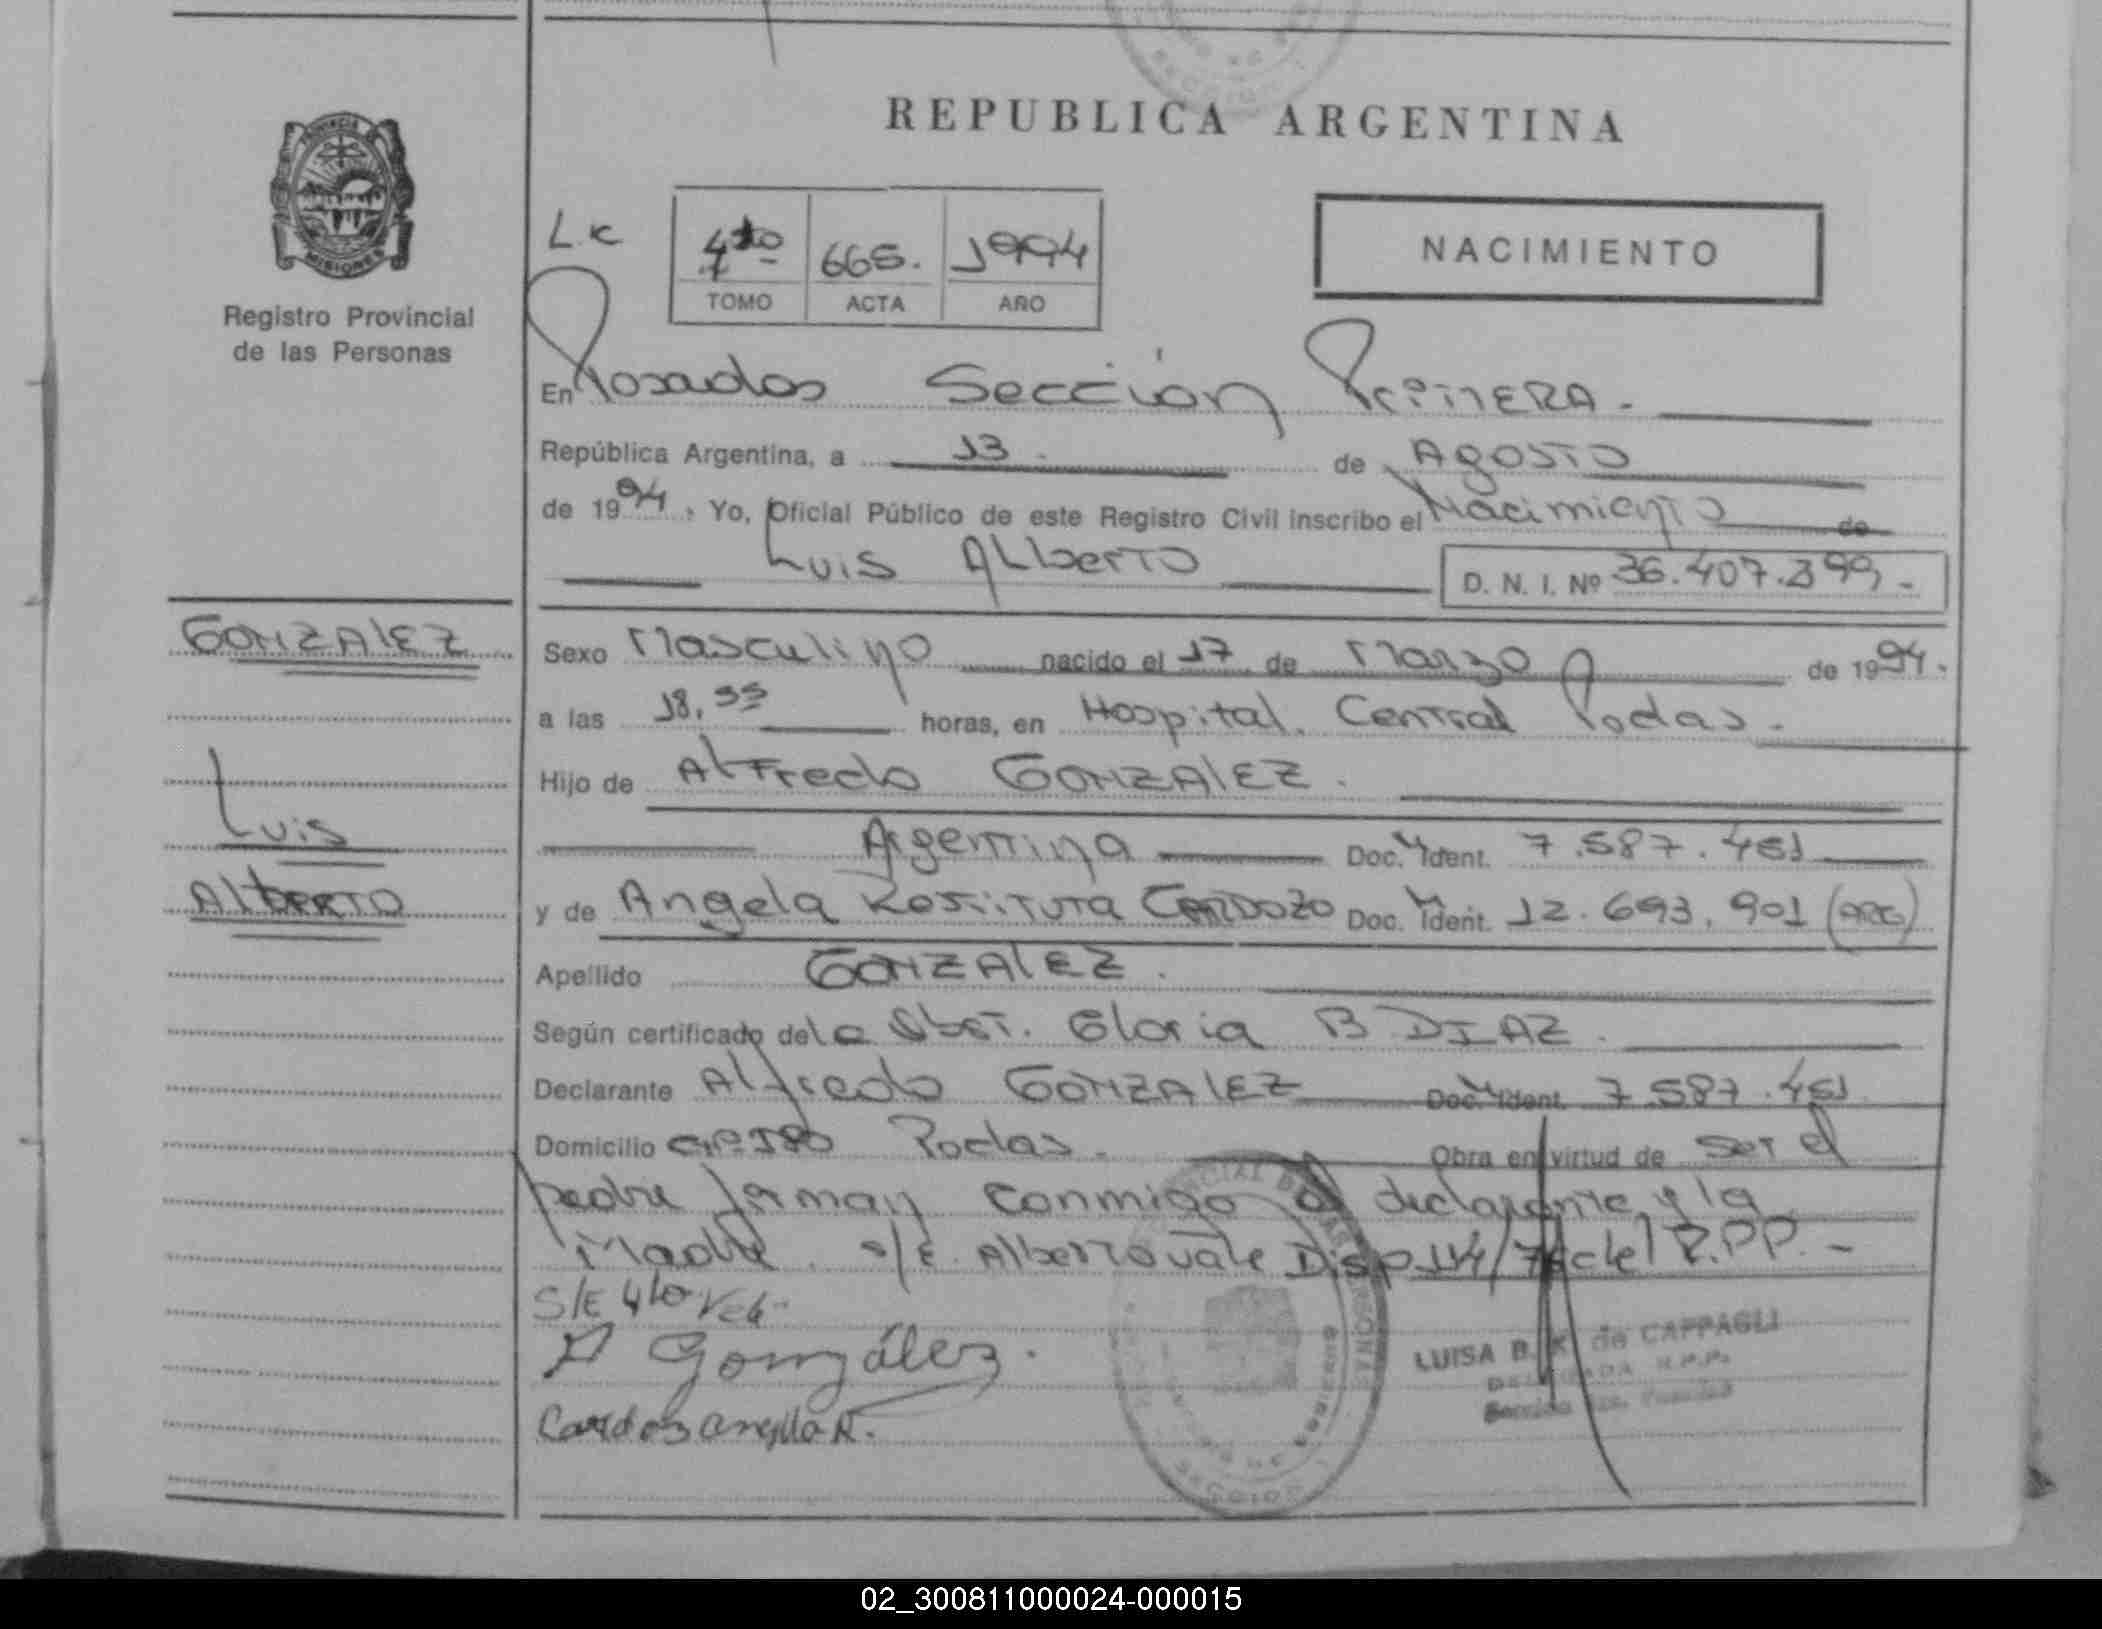 REPUBLICA ARGENTINA
PROVINCIA
MISIONES
Registro Provincial
de las Personas
4to 665. 1994
TOMO ACTA AÑO
NACIMIENTO
En Posadas Sección Primera.
República Argentina, a 13. de Agosto
de 1994, Yo, Oficial Público de este Registro Civil inscribo el Nacimiento de
Luis Alberto D. N. I. Nº 36.407.399.-
GONZALEZ
Luis
Alberto
Sexo Masculino nacido el 17 de Marzo de 1994.
a las 18,55 horas, en Hospital Central Podas.
Hijo de Alfredo GONZALEZ.
Argentina Doc. Ident. 7.587.451
y de Angela Restituta CARDOZO Doc. Ident. 12.693.901 (ARG)
Apellido GONZALEZ.
Según certificado de la Obst. Gloria B DIAZ.
Declarante Alfredo GONZALEZ Doc. Ident. 7.587.451
Domicilio Podas. Obra en virtud de ser el
padre firman conmigo el declarante y la
Madre. s/E. Alberto vale Disp 114/76 del R.PP.-
S/E 4to
A González.
LUISA B. K. de CAPPAGLI
DELEGADA R.P.P.
02_300811000024-000015